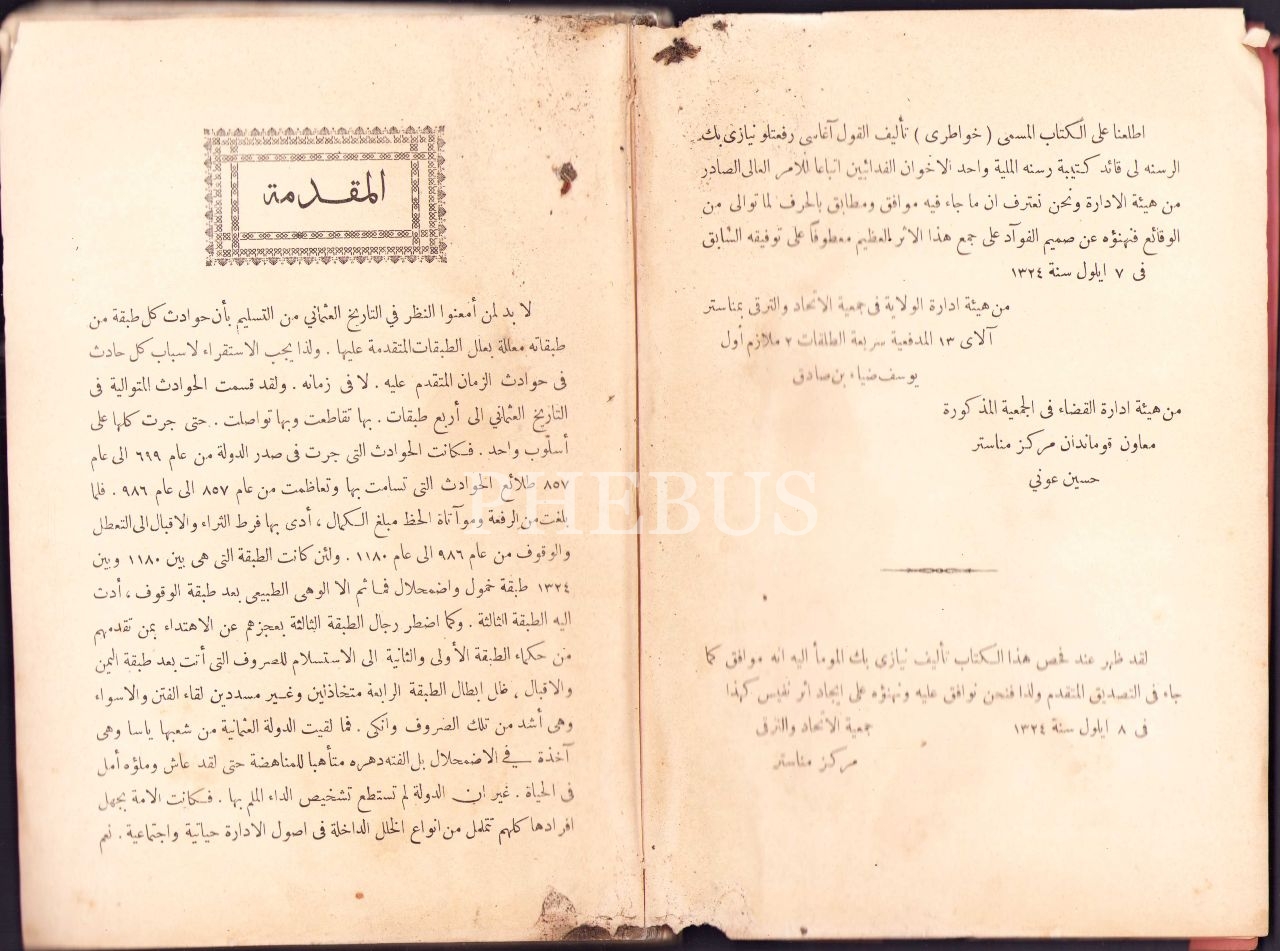 اطلعنا على الكتاب المسمى ( خواطرى ) تأليف القول آغاسى رفعتلو نيازى بك
الرسنه لى قائد كتيبة رسنه الملية واحد الاخوان الفدائيين اتباعا للامر العالى الصادر
من هيئة الادارة ونحن نعترف ان ما جاء فيه موافق ومطابق بالحرف لما توالى من
الوقائع فنهنؤه عن صميم الفوآد على جمع هذا الاثر العظيم معطوفا على توفيقه السابق
فى ٧ ايلول سنة ١٣٢٤
من هيئة ادارة الولاية فى جمعية الاتحاد والترقى بمناستر
آلاى ١٣ المدفعية سريعة الطلقات ٢ ملازم أول
يوسف ضياء بن صادق
من هيئة ادارة القضاء فى الجمعية المذكورة
معاون قوماندان مركز مناستر
حسين عوني
لقد ظهر عند فحص هذا الكتاب تأليف نيازى بك المومأ اليه انه موافق كما
جاء فى التصديق المتقدم ولذا فنحن نوافق عليه ونهنؤه على ايجاد اثر نفيس كهذا
فى ٨ ايلول سنة ١٣٢٤ جمعية الاتحاد والترقى
مركز مناستر
المقدمة
لا بد لمن أمعنوا النظر في التاريخ العثماني من التسليم بأن حوادث كل طبقة من
طبقاته معللة بعلل الطبقات المتقدمة عليها . ولذا يجب الاستقراء لاسباب كل حادث
فى حوادث الزمان المتقدم عليه . لا فى زمانه . ولقد قسمت الحوادث المتوالية فى
التاريخ العثماني الى أربع طبقات . بها تقاطعت وبها تواصلت . حتى جرت كلها على
أسلوب واحد . فكانت الحوادث التى جرت فى صدر الدولة من عام ٦٩٩ الى عام
٨٥٧ طلائع الحوادث التى تسامت بها وتعاظمت من عام ٨٥٧ الى عام ٩٨٦ . فلما
بلغت من الرفعة وموآتاة الحظ مبلغ الكمال ، أدى بها فرط الثراء والاقبال الى التعطل
والوقوف من عام ٩٨٦ الى عام ١١٨٠ . ولئن كانت الطبقة التى هى بين ١١٨٠ وبين
١٣٢٤ طبقة خمول واضمحلال فما ثم الا الوهى الطبيعى بعد طبقة الوقوف ، أدت
اليه الطبقة الثالثة . وكما اضطر رجال الطبقة الثالثة بعجزهم عن الاهتداء بمن تقدمهم
من حكماء الطبقة الأولى والثانية الى الاستسلام للصروف التى أتت بعد طبقة اليمن
والاقبال ، ظل ابطال الطبقة الرابعة متخاذلين وغير مسددين لقاء الفتن والاسواء
وهى أشد من تلك الصروف وأنكى . فما لقيت الدولة العثمانية من شعبها ياسا وهى
آخذة في الاضمحلال بل الفته دهره متأهبا للمناهضة حتى لقد عاش وملؤه أمل
فى الحياة . غير ان الدولة لم تستطع تشخيص الداء الملم بها . فكانت الامة بجهل
افرادها كلهم تتململ من انواع الخلل الداخلة فى اصول الادارة حياتية واجتماعية . نعم
PHEBUS